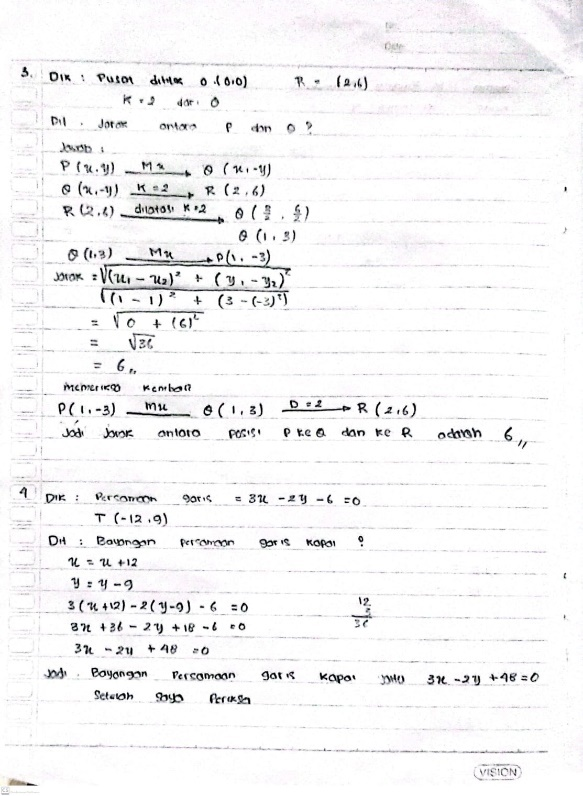 No:
Date:
3. Dik : Pusat dilatasi O (0,0) R = (2,6)
K = 2 dari O
Dit . Jarak antara P dan Q ?
Jawab :
P(x.y) Mx Q (x,-y)
Q (x,-y) K=2 R (2,6)
R(2,6) dilatasi K=2 Q (2/2 , 6/2)
Q (1,3)
Q (1,3) Mx P(1,-3)
Jarak = √(x₁ - x₂)² + (y₁ - y₂)²
√(1 - 1)² + (3 - (-3)²)
= √0 + (6)²
= √36
= 6,,
memeriksa kembali
P(1,-3) mx Q (1,3) D=2 R (2,6)
Jadi Jarak antara posisi P ke Q dan ke R adalah 6,,
4 Dik : Persamaan garis = 3x - 2y - 6 = 0
T (-12,9)
Dit : Bayangan persamaan garis kapal ?
x = x + 12
y = y - 9
3(x+12) - 2(y-9) - 6 = 0 12
3x + 36 - 2y + 18 - 6 = 0 3
3x - 2y + 48 = 0 36
Jadi . Bayangan Persamaan garis kapal yaitu 3x - 2y + 48 = 0
Setelah saya Periksa
VISION